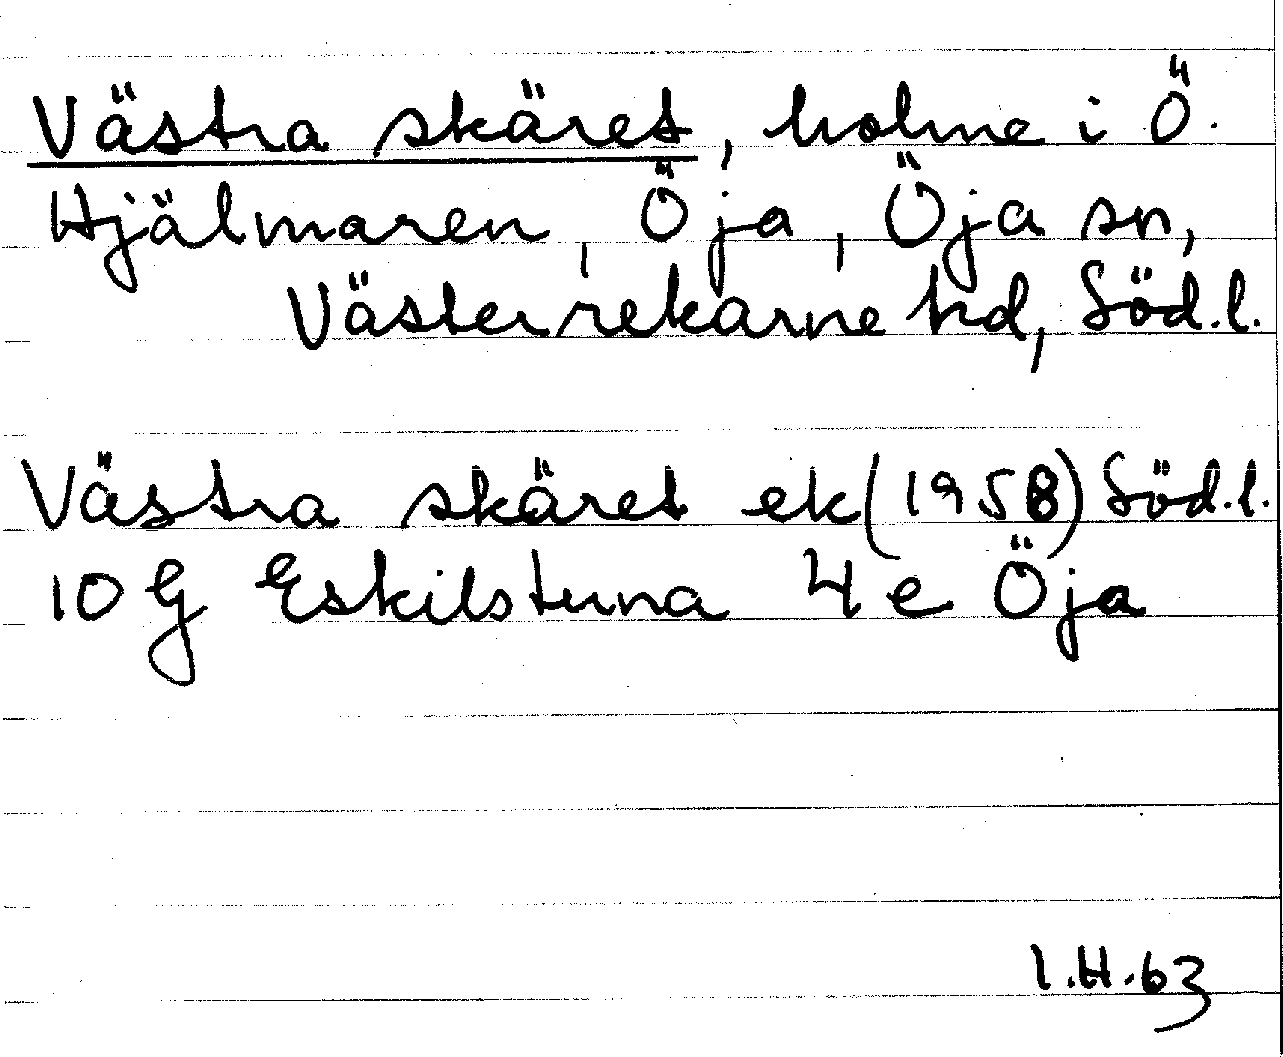 Västra skäret, holme i Ö.
Hjälmaren, Öja, Öja sn,
Västerrekarne hd, Söd.l.
Västra skäret ek (1958) Söd.l.
10 G Eskilstuna 4 e Öja
I.H.63